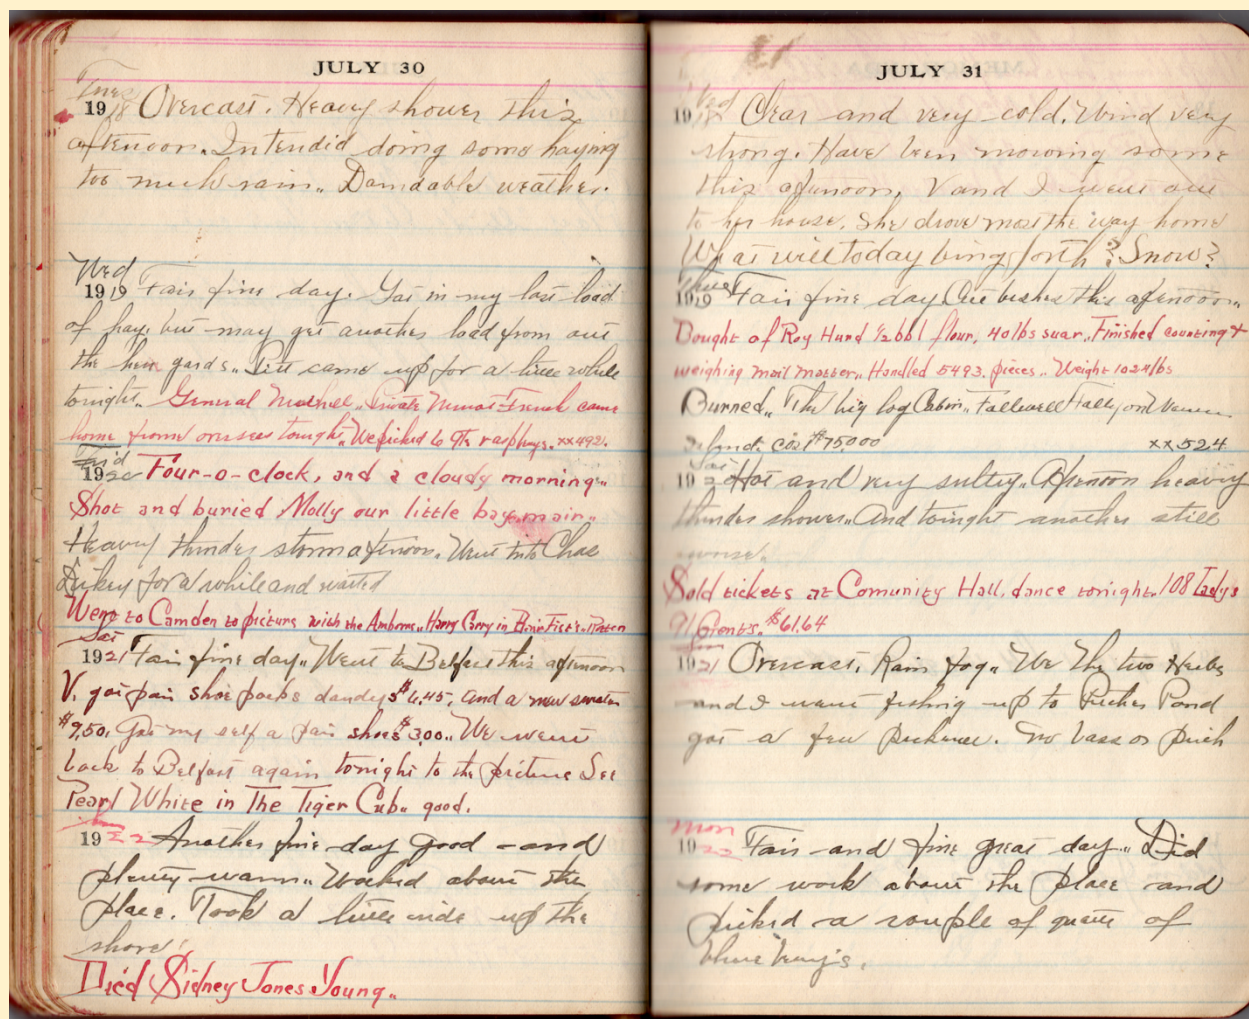 JULY 30
Tues
1918 Overcast. Heavy shower this
afternoon. Intendid doing some haying
too much rain.. Damdable weather.
Wed
1919 Fair fine day. Got in my last load
of hay. but may get another load from out
the hen yards.. came up for a little while
tonight.. General Private French came
home from overseas tonight.. We picked 6 qts raspbys. xx492.
1920 Four-o-clock, and a cloudy morning..
Shot and buried Molly our little bay mair..
Heavy thunder storm afternoon. Went into Chas
for a while and
Went to Camden to picture with the Harry Carry in
Sat
1921 Fair fine day.. Went to Belfast this afternoon
V. got pair shoe packs dandeys $6.45. and a new sweater
$9.50. Got my self a pair shoes $3.00.. We went
back to Belfast again tonight to the picture See
Pearl White in The Tiger Cub.. good.
1922 Another fine day good and
plenty warm.. Worked about the
place. Took a little ride up the
shore.
Died Sidney Jones Young..
JULY 31
Wed
1918 Clear and very cold. Wind very
strong. Have been mowing some
this afternoon. V and I went out
to her house. She drove most the way home
What will today bing forth? Snow?
Thur
1919 Fair fine day Cut bushes this afternoon..
Bought of Roy Hurd 1/2 bbl flour, 40 lbs suar.. Finished counting +
weighing mail matter.. Handled 5493. pieces.. Weight 1024 lbs
Burned.. The big log Cabin..
cost $75000 xx524
Sat
19 Hot and very sultry.. Afternoon heavy
thunder shower.. And tonight another still
worse..
Sold tickets at Comunity Hall. dance tonight. 108 Lady's
91 Gents.. $61.64
Sun
1921 Overcast. Rain fog.. We The two
and I went fishing up to Pond
got a few pickerel. No bass or
Mon
1922 Fair and fine great day.. Did
some work about the place and
picked a couple of quarts of